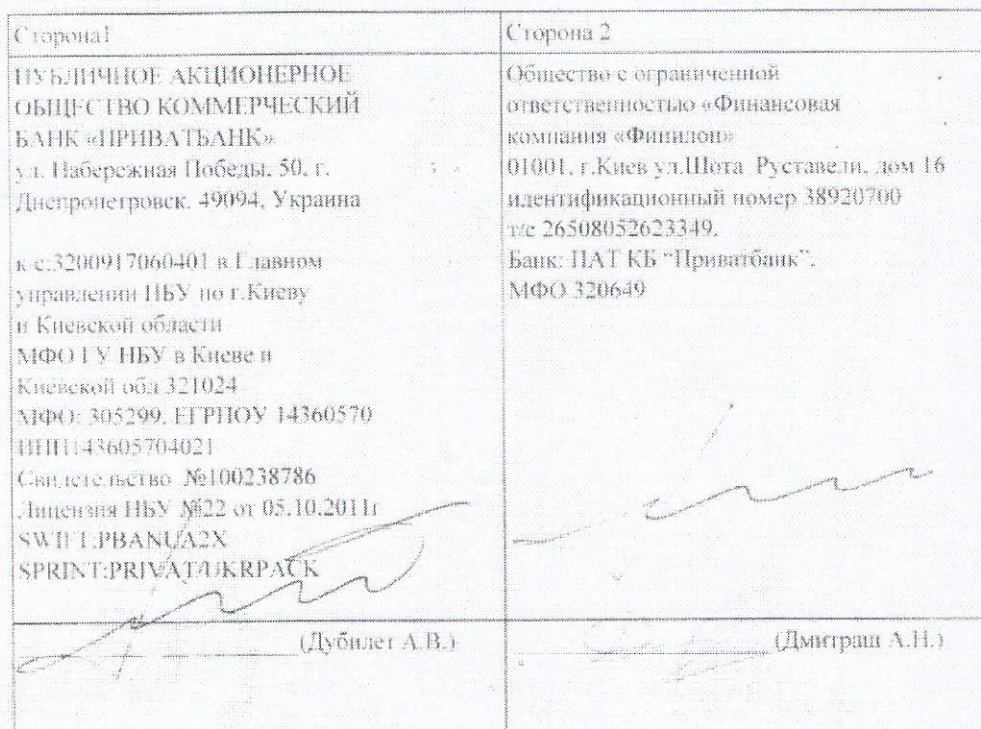 Сторона1
ПУБЛИЧНОЕ АКЦИОНЕРНОЕ
ОБЩЕСТВО КОММЕРЧЕСКИЙ
БАНК «ПРИВАТБАНК»
ул. Набережная Победы, 50, г.
Днепропетровск, 49094, Украина
к/с:3200917060401 в Главном
управлении НБУ по г.Киеву
и Киевской области
МФО ГУ НБУ в Киеве и
Киевской обл 321024
МФО: 305299, ЕГРПОУ 14360570
ИНН143605704021
Свидетельство №100238786
Лицензия НБУ №22 от 05.10.2011г
SWIFT:PBANUA2X
SPRINT:PRIVAT/UKRPACK
(Дубилет А.В.)
Сторона 2
Общество с ограниченной
ответственностью «Финансовая
компания «Финилон»
01001, г.Киев ул.Шота Руставели, дом 16
идентификационный номер 38920700
т/с 26508052623349,
Банк: ПАТ КБ “Приватбанк”,
МФО 320649
(Дмитраш А.Н.)